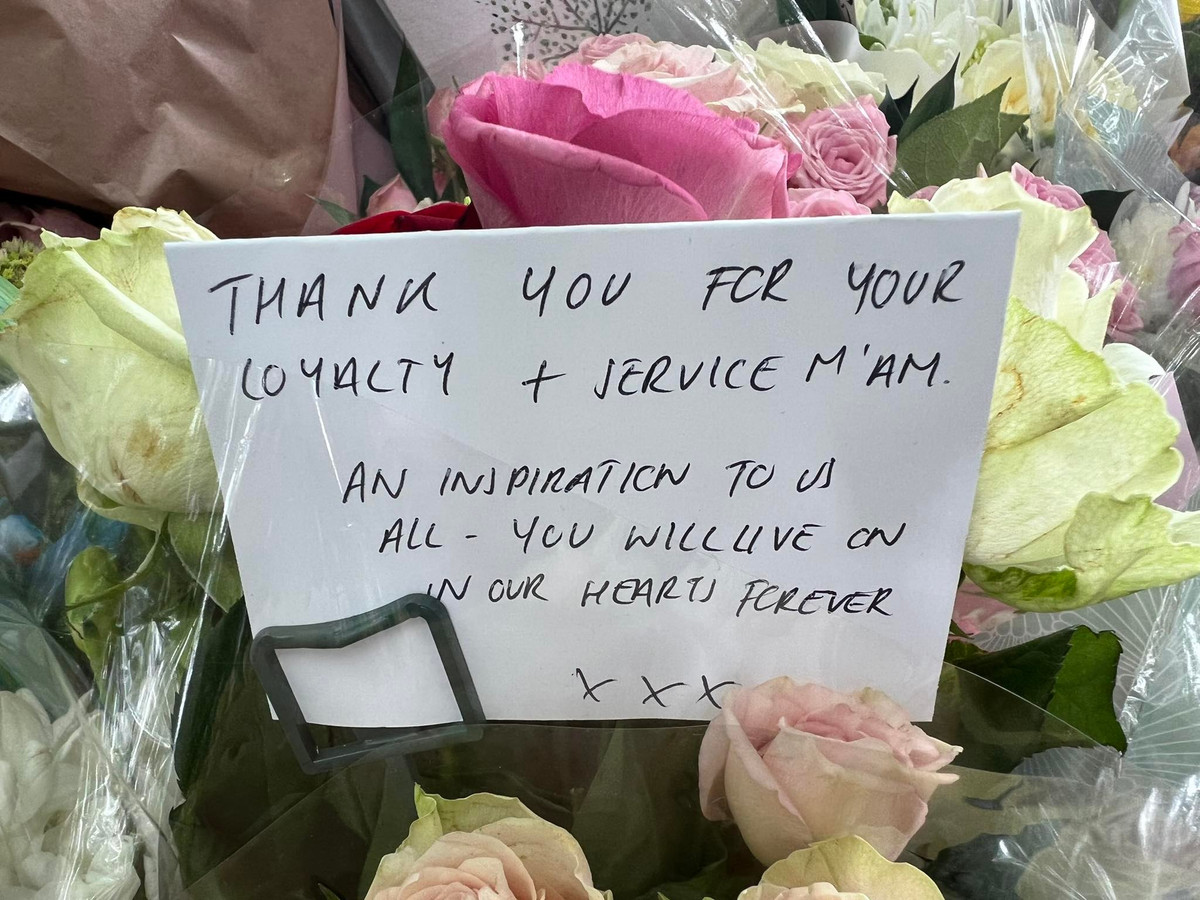 THANK YOU FOR YOUR
LOYALTY + SERVICE M'AM.
AN INSPIRATION TO US
ALL - YOU WILL LIVE ON
IN OUR HEARTS FOREVER
X X X